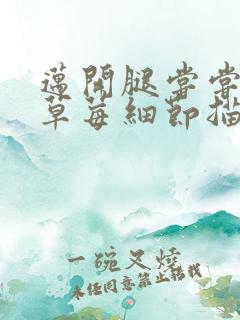 邁開腿嘗嘗
草莓細節描
一碗叉燒
未经同意禁止转载